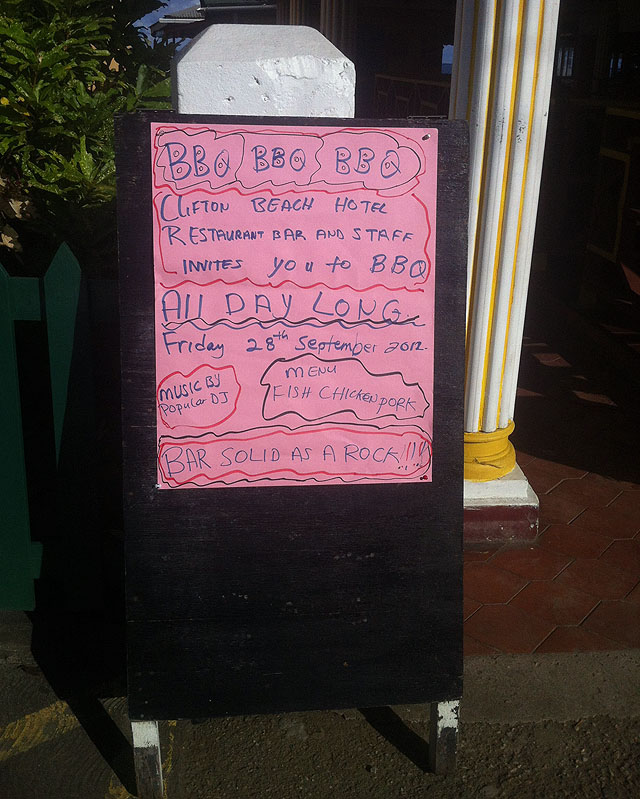 BBQ BBQ BBQ
CLIFTON BEACH HOTEL
RESTAURANT BAR AND STAFF
INVITES you to BBQ
All DAY LONG
Friday 28th September 2012.
MUSIC BY
Popular DJ
MENU
FISH CHICKEN PORK
BAR SOLID AS A ROCK!!!!